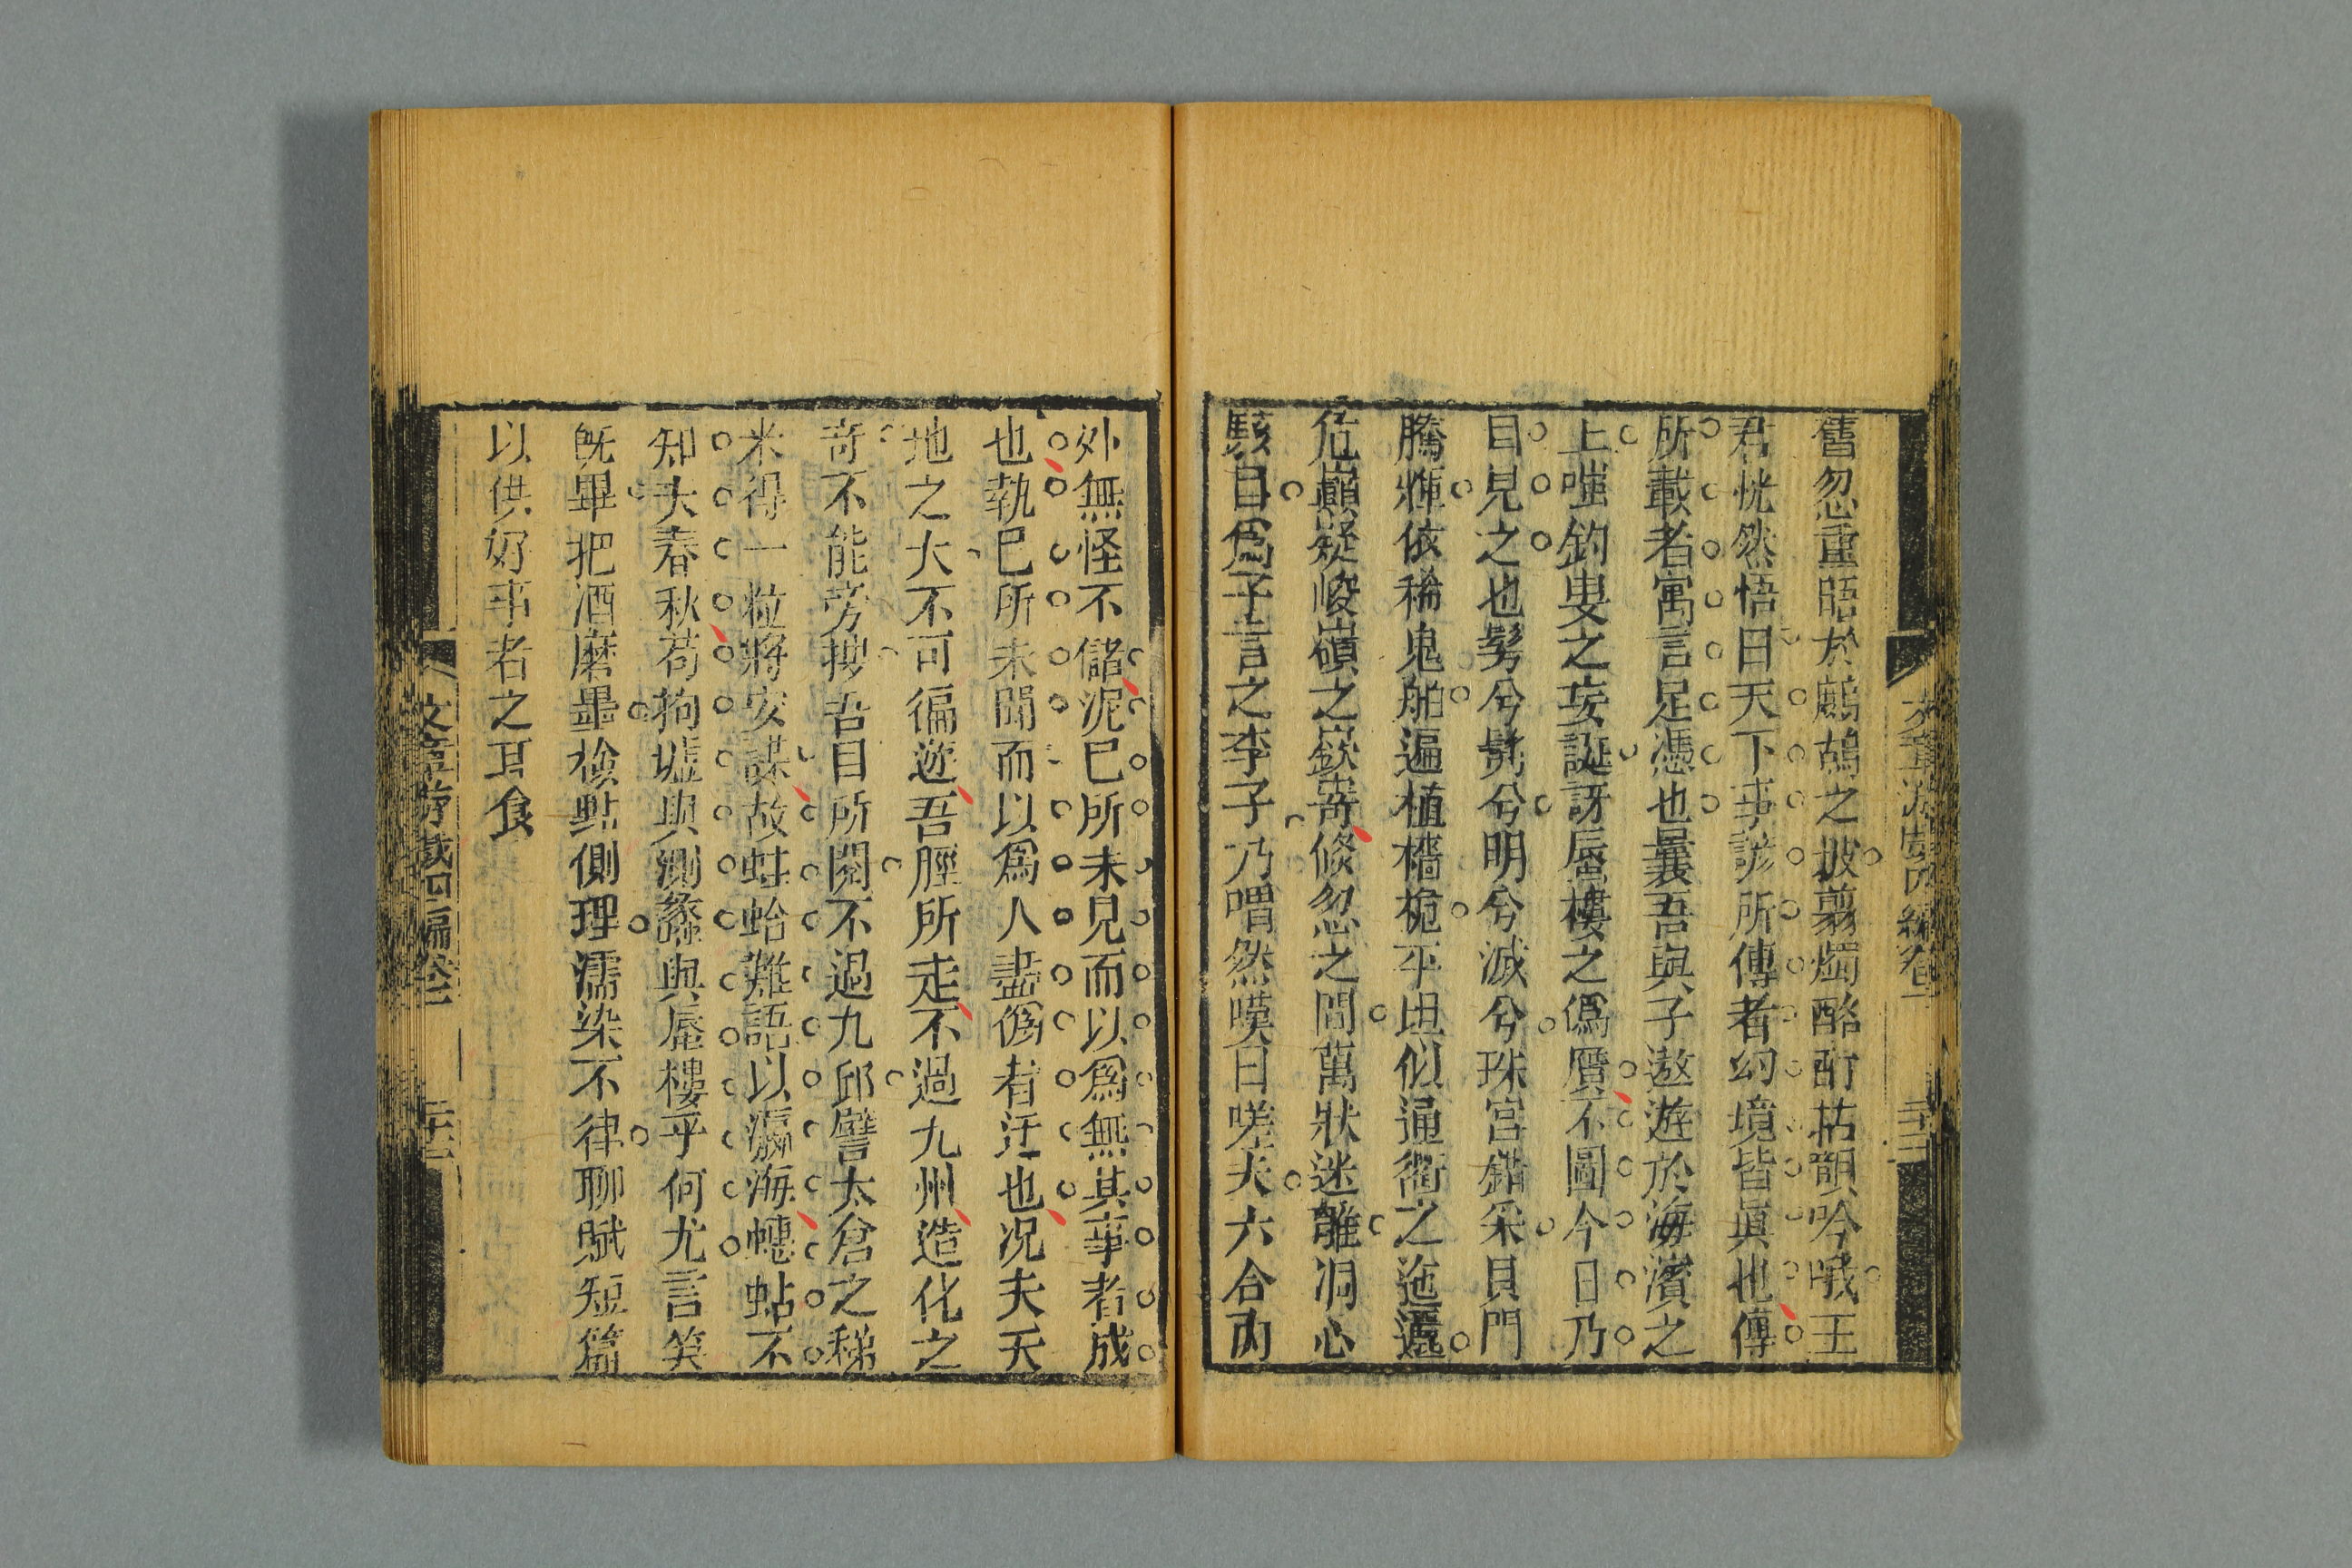 舊忽重晤於鷓鴣之坡剪燭酩酊枯韻吟哦王
君恍然悟曰天下事諺所傳者幻境皆眞也傳
所載者寓言足憑也曩吾與子遨遊於海濱之
上嗤釣叟之妄誕訝蜃樓之僞贋不圖今日乃
目見之也髣兮髴兮明兮滅兮珠宮錯采貝門
騰輝依稀鬼舶遍植檣桅平坦似通衢之迤邐
危巓疑峻嶺之嶔嵜倐忽之間萬狀迷離洞心
駭目爲子言之李子乃喟然嘆曰嗟夫六合內
外無怪不儲泥已所未見而以爲無其事者成
也執已所未聞而以爲人盡僞者迂也况夫天
地之大不可徧遊吾脛所走不過九州造化之
奇不能旁搜吾目所閱不過九邱譬太倉之稊
米得一粒將安謀故蛙蛤難語以瀛海蟪蛄不
知大春秋苟拘墟與測蠡與蜃樓乎何尤言笑
旣畢把酒磨墨檢點側理濡染不律聊賦短篇
以供好事者之耳食
文章游戲四編卷二
二十三